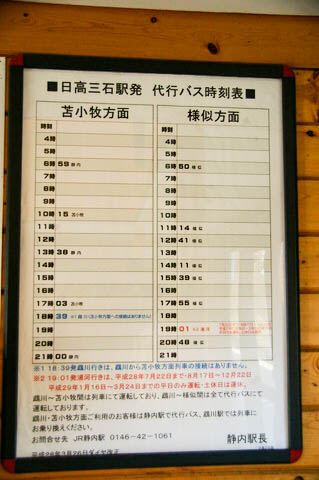 ■日高三石駅発 代行バス時刻表■
苫小牧方面
時刻
4時
5時
6時 59 静内
7時
8時
9時
10時 15 苫小牧
11時
12時
13時 38 静内
14時
15時
16時
17時 03 苫小牧
18時 39
19時
20時
21時 00 静内
様似方面
時刻
4時
5時
6時 50 様似
7時
8時
9時
10時
11時 14 様似
12時 41 様似
13時
14時 11 様似
15時 39 様似
16時
17時 55 様似
18時
19時 01 ※2 浦河
20時
21時
※1 18:39発鵡川行きは、鵡川から苫小牧方面列車の接続はありません。
※2 19:01発浦河行きは、平成28年7月22日まで・8月17日～12月22日
平成29年1月16日～3月24日までの平日のみ運行・土休日は運休。
鵡川～苫小牧間は列車にて運転しており、鵡川～様似間は全て代行バスにて
運転しております。
鵡川・苫小牧方面ご利用のお客様は静内駅で代行バス、鵡川駅では列車に
お乗り換えください。
お問合せ先 JR静内駅 0146-42-1061
静内駅長
平成28年3月26日ダイヤ改正